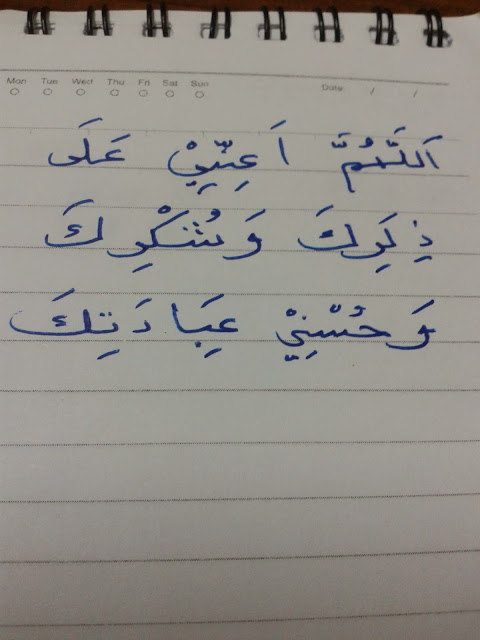 Mon Tue Wed Thu Fri Sat Sun Date: / /
اَللَّهُمَّ اَعِنِّيْ عَلَى
ذِكِرِكَ وَشُكْرِكَ
وَحُسْنِيْ عِبَادَتِكَ